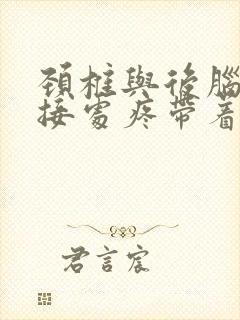 頸椎與後腦
接處疼帶着
君言宸